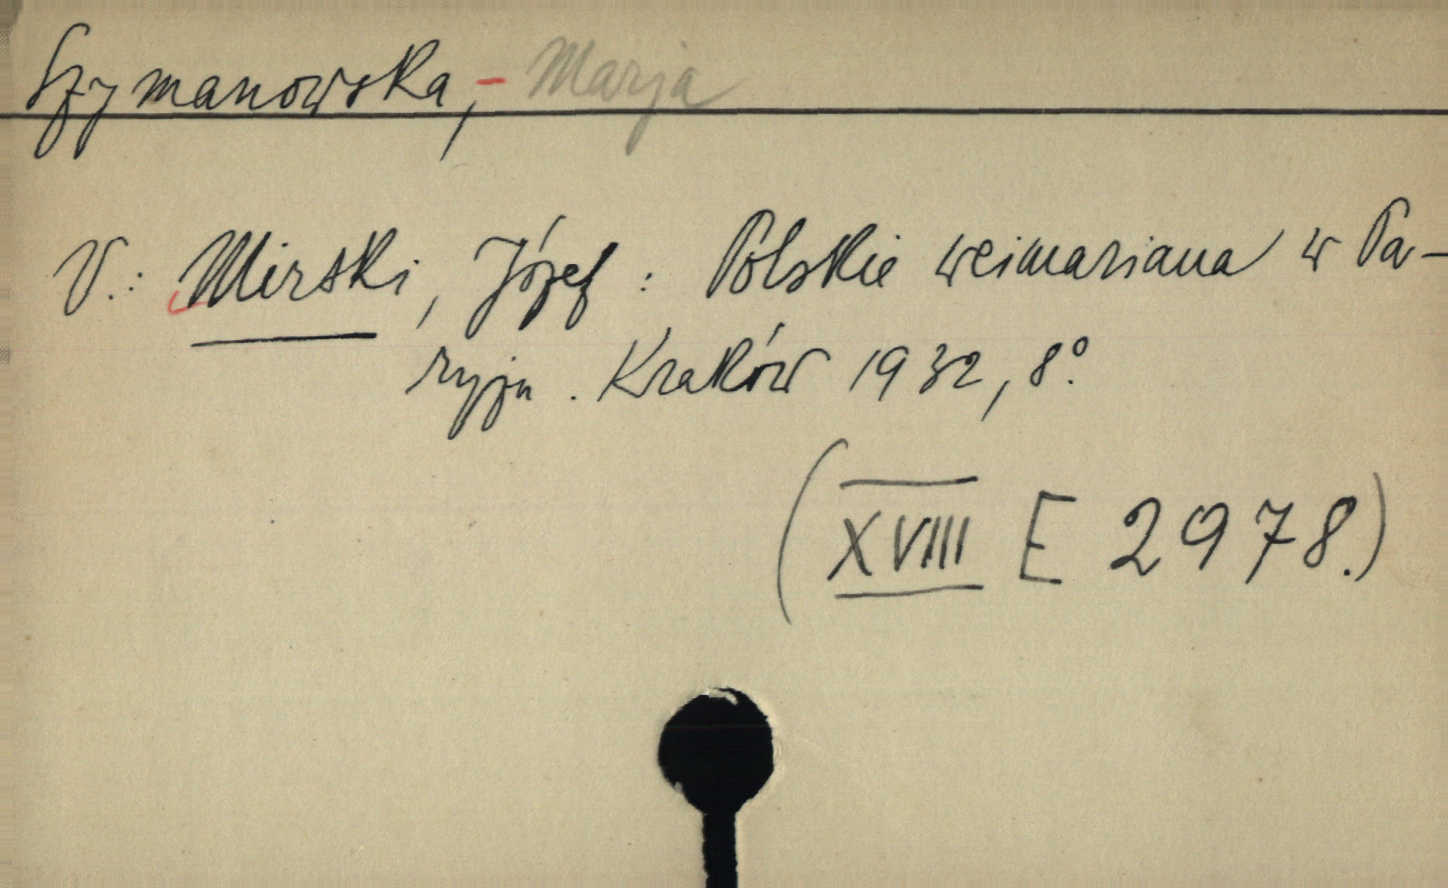 Szymanowska, - Marja
V.: Mirski, Józef: Polskie weimariana w Pa-
ryżu. Kraków 1932, 8°.
(XVIII E 2978.)